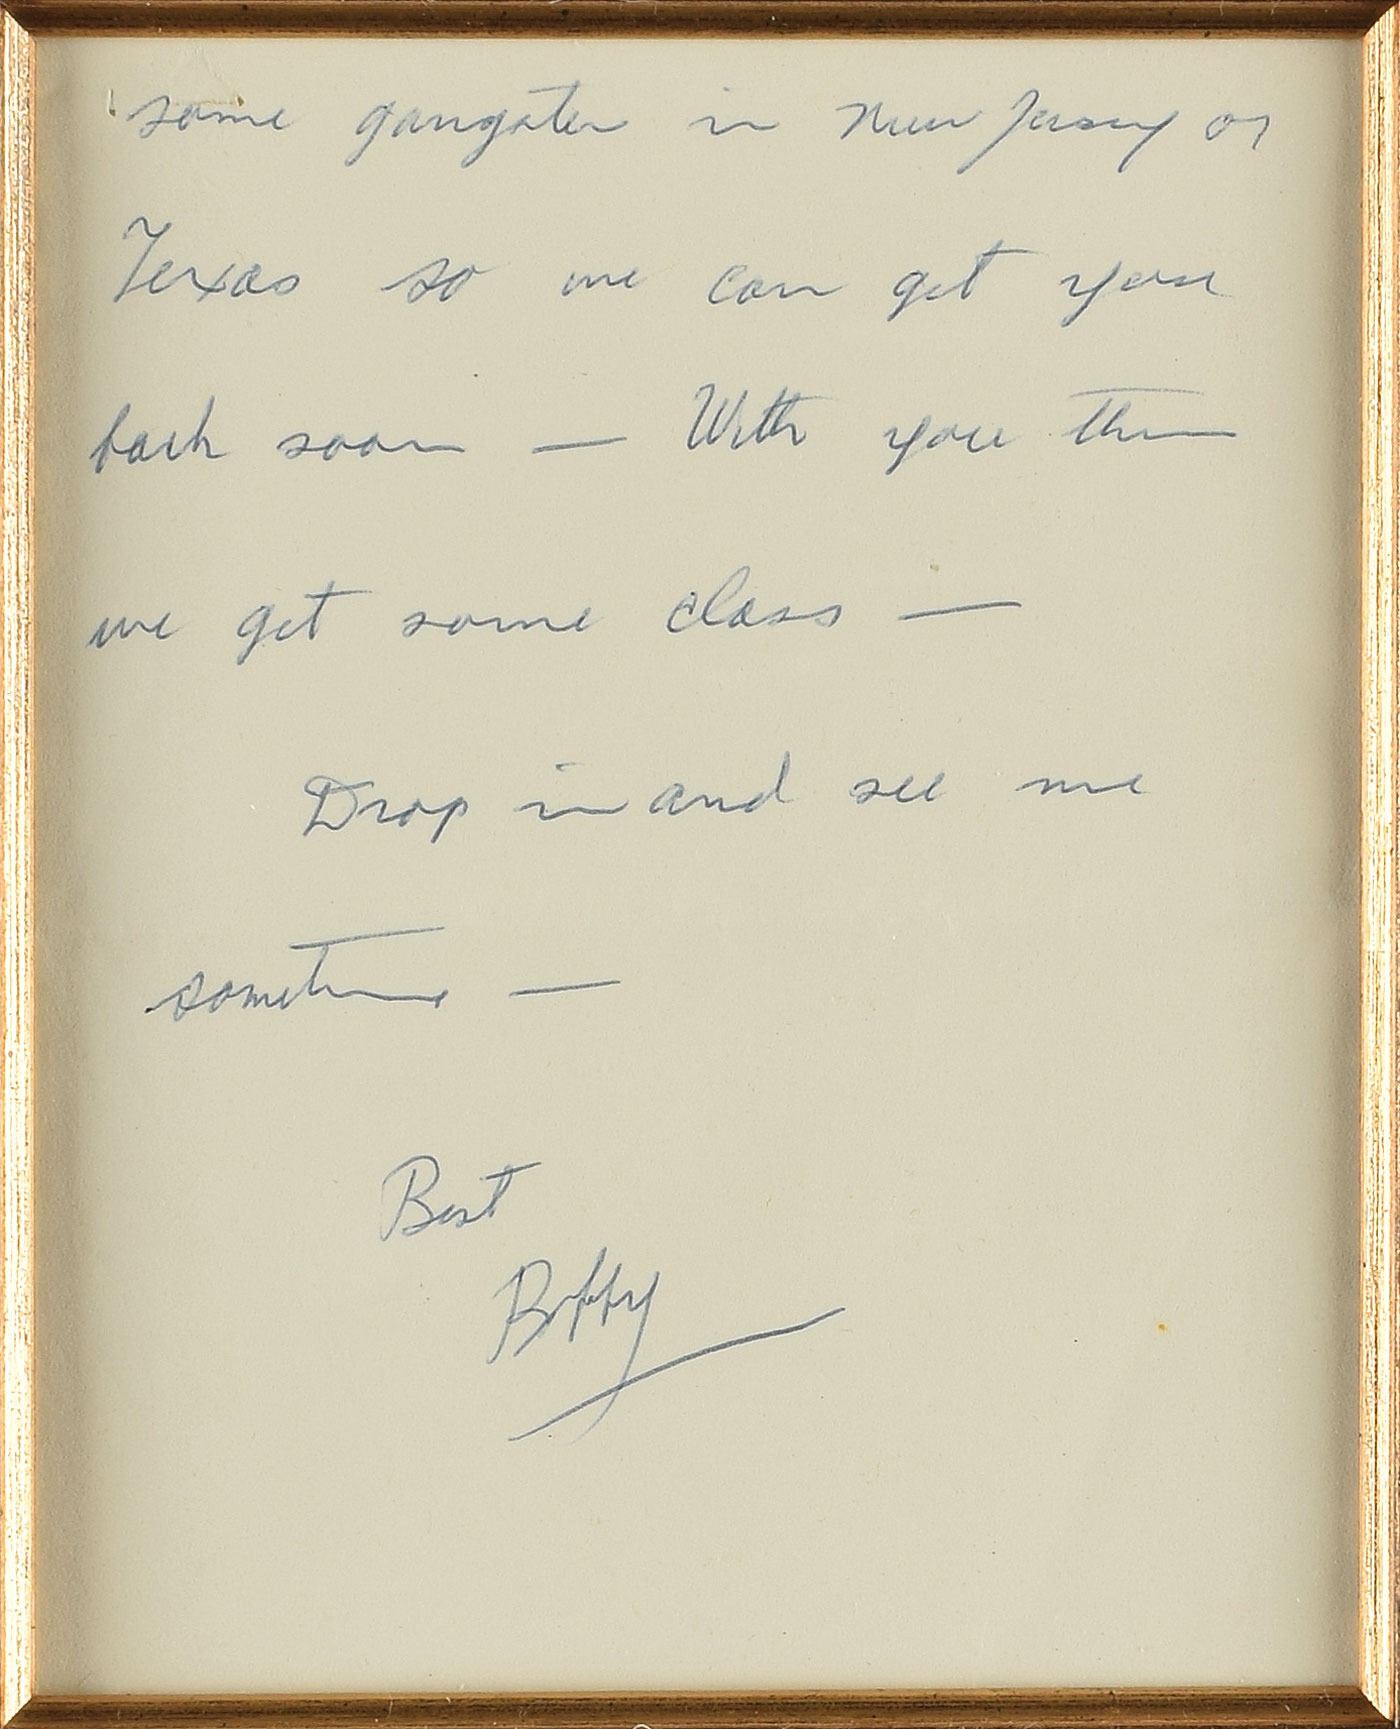 some gangster in New Jersey or
Texas so we can get you
back soon — With you then
we get some class —
Drop in and see me
sometime —
Best
Biffy